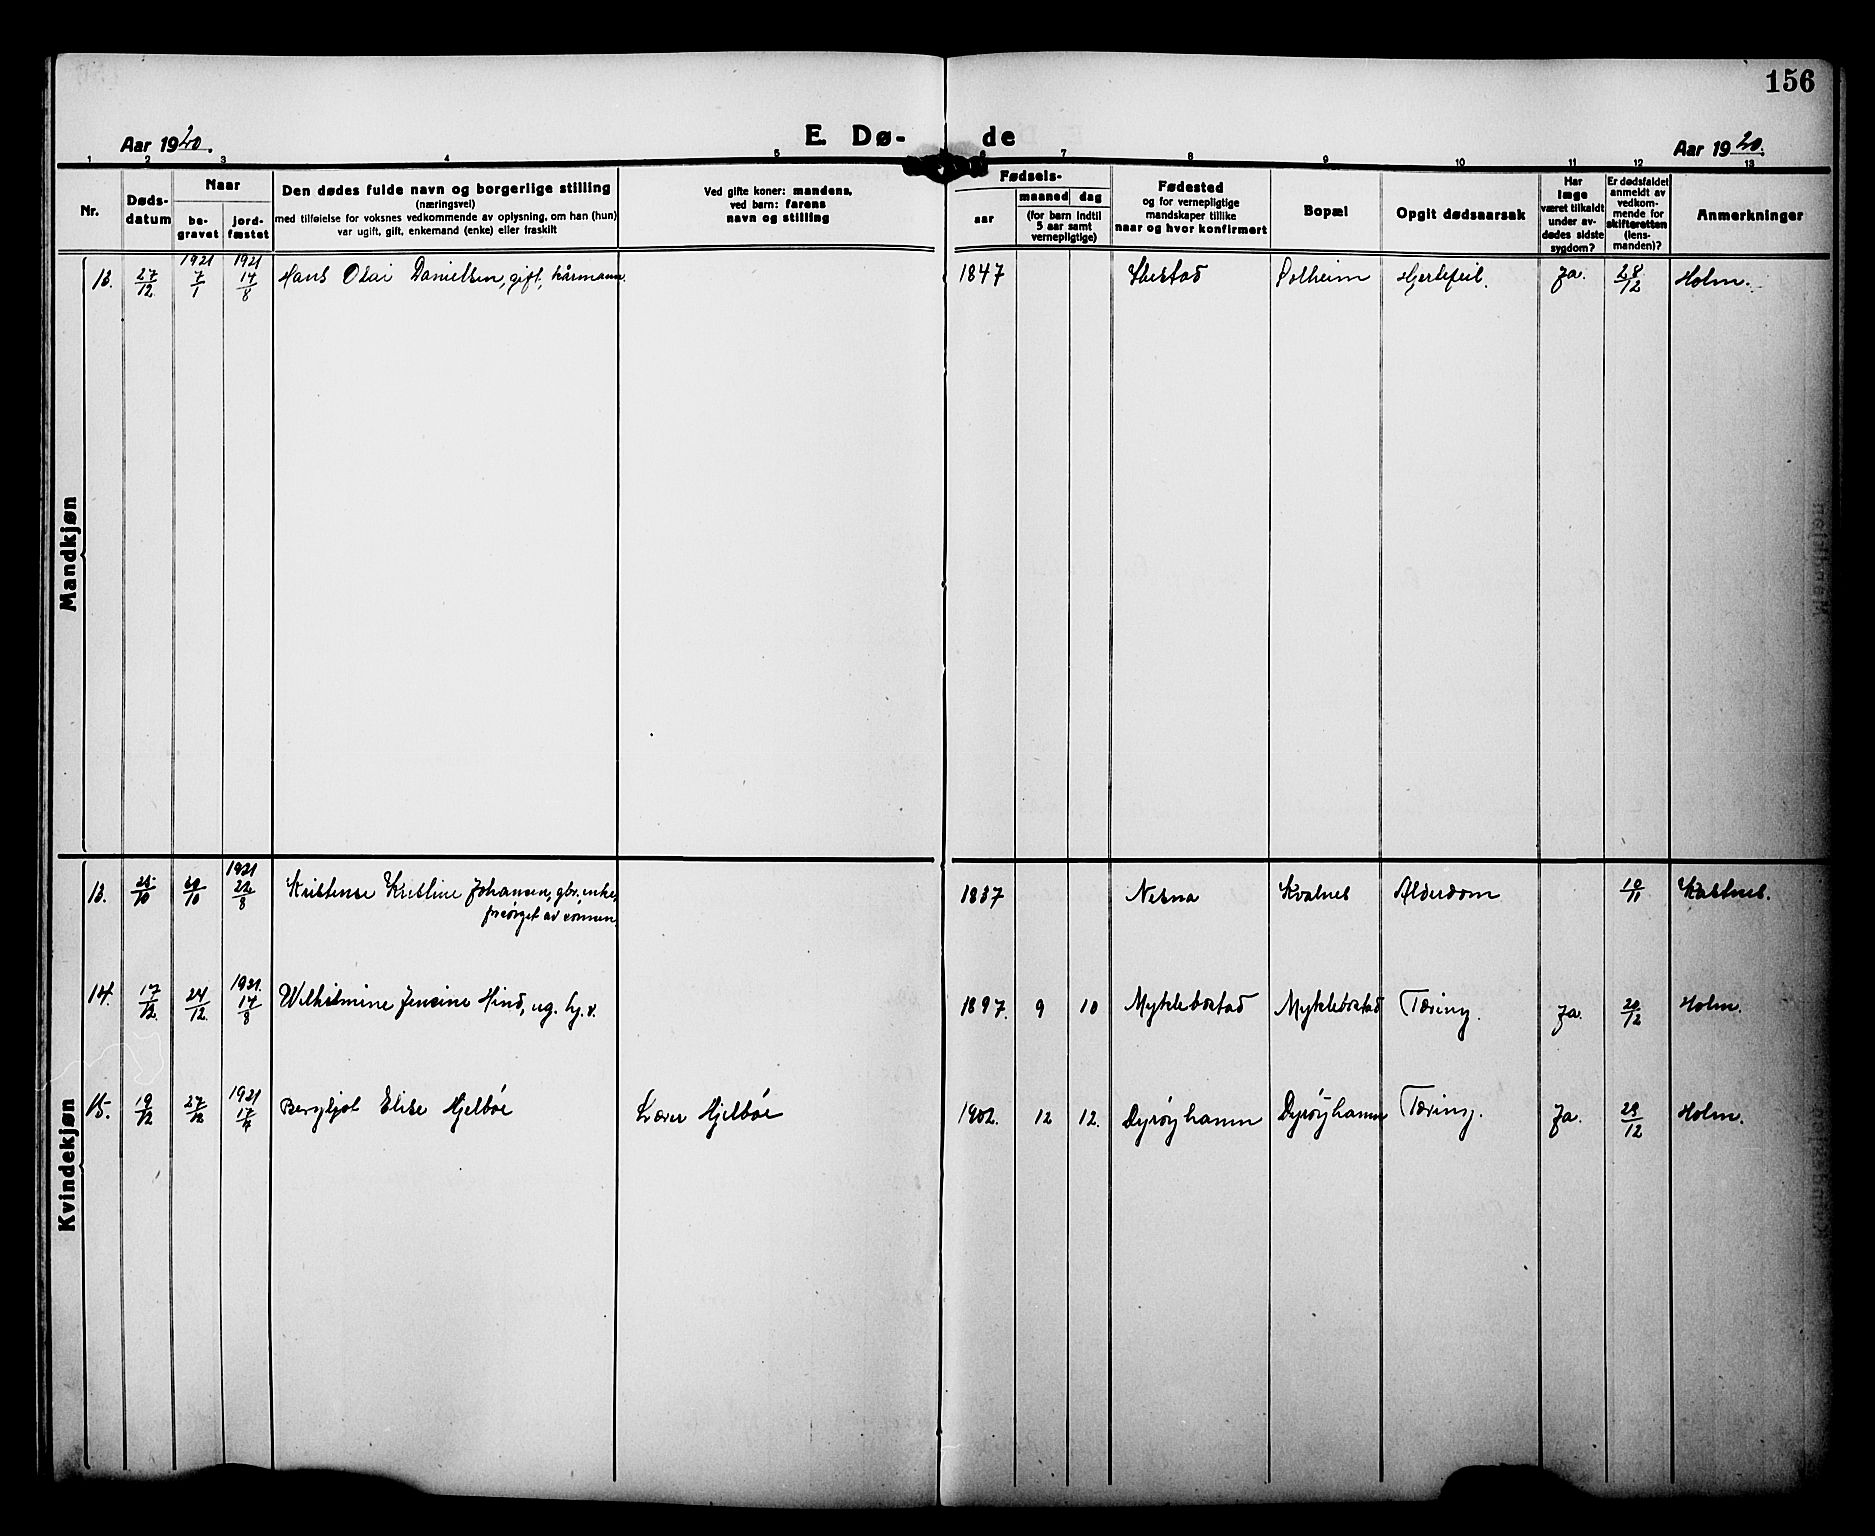 156
Aar 1920.
E. Dø-
de
Aar 1920.
1 2 3 4 5 6 7 8 9 10 11 12 13
Nr.
Døds-
datum
Naar
be-
gravet
jord-
fæstet
Den dødes fulde navn og borgerlige stilling
(næringsvei)
med tilføielse for voksnes vedkommende av oplysning, om han (hun)
var ugift, gift, enkemand (enke) eller fraskilt
Ved gifte koner: mandens,
ved barn: farens
navn og stilling
Fødsels-
aar
maaned
dag
(for barn indtil
5 aar samt
vernepligtige)
Fødested
og for vernepligtige
mandskaper tillike
naar og hvor konfirmert
Bopæl
Opgit dødsaarsak
Har
læge
været tilkaldt
under av-
dødes sidste
sygdom?
Er dødsfaldet
anmeldt av
vedkom-
mende for
skifteretten
(lens-
manden)?
Anmerkninger
Mandkjøn
1921 1921
13. 27/12 7/1 14/8 Hans Osai Danielsen, gift, kårmann. 1847 Ibestad Solheim Hjertefeil. Ja. 28/12 Holm.
Kvindekjøn
1921
13. 25/10 29/10 22/8 Kristense Kristine Johansen, gbr. enke, 1837 Nesna Kvalnes Alderdom 10/11 Kastnes.
forsørget av sønnen.
1921.
14. 17/12 24/12 14/8 Wilhelmine Jensine Hind, ug. hj. v. 1897. 9 10 Myklebostad Myklebostad Tæring. Ja. 20/12 Holm.
1921
15. 19/12 27/12 17/4 Bergljot Elise Hjelbøe Lærer Hjelbøe 1902. 12 12. Dyrøyhamn Dyrøyhamn Tæring. Ja. 23/12 Holm.